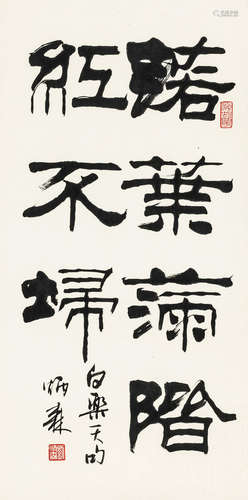 落葉滿階
紅不埽
白樂天句
炳森